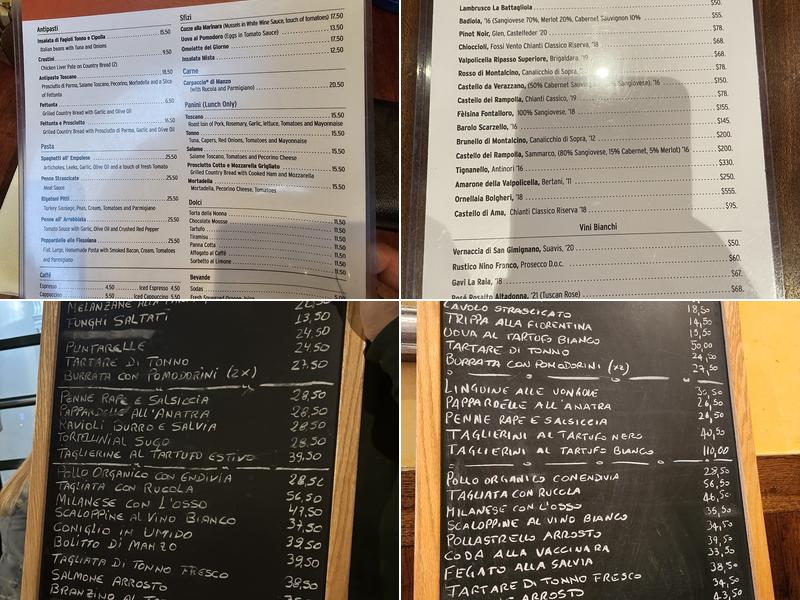 Antipasti
Insalata di Fagioli Tonno e Cipolla 15.50
Italian beans with Tuna and Onions
Crostini 9.50
Chicken Liver Pate on Country Bread (2)
Antipasto Toscano 18.50
Prosciutto di Parma, Salame Toscano, Pecorino, Mortadella and a Slice
of Fettunta
Fettunta 6.50
Grilled Country Bread with Garlic and Olive Oil
Fettunta e Prosciutto 16.50
Grilled Country Bread with Prosciutto di Parma, Garlic and Olive Oil
Pasta
Spaghetti all' Empolese 25.50
Artichokes, Leeks, Garlic, Olive Oil and a touch of fresh Tomato
Penne Strascicate 25.50
Meat Sauce
Rigatoni Pitti 25.50
Turkey Sausage, Peas, Cream, Tomatoes and Parmigiano
Penne all' Arrabbiata 25.50
Tomato Sauce with Garlic, Olive Oil and Crushed Red Pepper
Pappardelle alla Fiesolana 25.50
Flat, Large, Homemade Pasta with Smoked Bacon, Cream, Tomatoes
and Parmigiano
Caffè
Espresso 4.50 Iced Espresso 4.50
Cappuccino 5.50 Iced Cappuccino 5.50
Sfizi
Cozze alla Marinara (Mussels in White Wine Sauce, touch of tomatoes) 17.50
Uova al Pomodoro (Eggs in Tomato Sauce) 13.50
Omelette del Giorno 17.50
Insalata Mista 12.50
Carne
Carpaccio* di Manzo 20.50
(with Rucola and Parmigiano)
Panini (Lunch Only)
Toscano 15.50
Roast Loin of Pork, Rosemary, Garlic, lettuce, Tomatoes and Mayonnaise
Tonno 15.50
Tuna, Capers, Red Onions, Tomatoes and Mayonnaise
Salame 15.50
Salame Toscano, Tomatoes and Pecorino Cheese
Prosciutto Cotto e Mozzarella Grigliato 15.50
Grilled Country Bread with Cooked Ham and Mozzarella
Mortadella 15.50
Mortadella, Pecorino Cheese, Tomatoes
Dolci
Torta della Nonna 11.50
Chocolate Mousse 11.50
Tartufo 11.50
Tiramisu 11.50
Panna Cotta 11.50
Affogato al Caffè 11.50
Sorbetto al Limone 11.50
Bevande
Sodas
Lambrusco La Battagliola $50.
Badiola, '16 (Sangiovese 70%, Merlot 20%, Cabernet Sauvignon 10% $55.
Pinot Noir, Glen, Castelfeder '20 $78.
Chioccioli, Fossi Vento Chianti Classico Riserva, '18 $68.
Valpolicella Ripasso Superiore, Brigaldara, $68.
Rosso di Montalcino, Canalicchio di Sopra, $78.
Castello da Verazzano, (50% Cabernet Sauvignon, Sangiovese), '16 $150.
Castello dei Rampolla, Chianti Classico, '19 $78.
Fèlsina Fontalloro, 100% Sangiovese, '18 $155.
Barolo Scarzello, '16 $145.
Brunello di Montalcino, Canalicchio di Sopra, '12 $200.
Castello dei Rampolla, Sammarco, (80% Sangiovese, 15% Cabernet, 5% Merlot) '16 $200.
Tignanello, Antinori '16 $330.
Amarone della Valpolicella, Bertani, '11 $250.
Ornellaia Bolgheri, '18 $555.
Castello di Ama, Chianti Classico Riserva '18 $95.
Vini Bianchi
Vernaccia di San Gimignano, Suavis, '20 $50.
Rustico Nino Franco, Prosecco D.o.c. $60.
Gavi La Raia, '18 $67.
Rosé Rosalto Altadonna, '21 (Tuscan Rose) $68.
MELANZANE ALLA
FUNGHI SALTATI 13,50
24,50
PUNTARELLE 24,50
TARTARE DI TONNO 27,50
BURRATA CON POMODORINI (2X)
PENNE RAPE E SALSICCIA 28,50
PAPPARDELLE ALL'ANATRA 28,50
RAVIOLI BURRO E SALVIA 28,50
TORTELLINI AL SUGO 28,50
TAGLIERINE AL TARTUFO ESTIVO 39,50
POLLO ORGANICO CON ENDIVIA 28,50
TAGLIATA CON RUCOLA 56,50
MILANESE CON L'OSSO 47,50
SCALOPPINE AL VINO BIANCO 37,50
CONIGLIO IN UMIDO 39,50
BOLLITO DI MANZO 39,50
TAGLIATA DI TONNO FRESCO
SALMONE ARROSTO 38,50
BRANZINO AL
CAVOLO STRASCICATO 18,50
TRIPPA ALLA FIORENTINA 14,50
UOVA AL TARTUFO BIANCO 15,50
TARTARE DI TONNO 50,00
BURRATA CON POMODORINI (X2) 24,50
27,50
LINGUINE ALLE VONGOLE
PAPPARDELLE ALL'ANATRA 28,50
PENNE RAPE E SALSICCIA 28,50
TAGLIERINI AL TARTUFO NERO 40,50
TAGLIERINI AL TARTUFO BIANCO 110,00
POLLO ORGANICO CON ENDIVIA 28,50
TAGLIATA CON RUCOLA 56,50
MILANESE CON L'OSSO 46,50
SCALOPPINE AL VINO BIANCO 35,50
POLLASTRELLO ARROSTO 34,50
CODA ALLA VACCINARA 39,50
FEGATO ALLA SALVIA 33,50
TARTARE DI TONNO FRESCO 38,50
ARROSTO 34,50
43,50